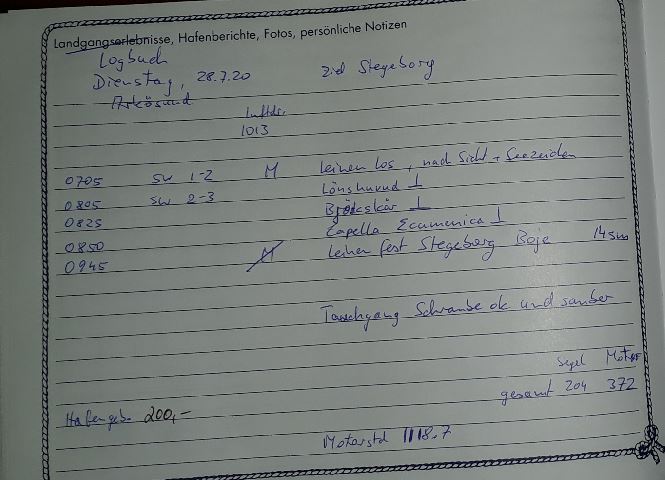 Landgangserlebnisse, Hafenberichte, Fotos, persönliche Notizen
Logbuch
Dienstag, 28.7.20 Ziel Stegeborg
Arkösund
Luftdr.
1013
0705 SW 1-2 M Leinen los, nach Sicht + Seezeichen
0805 SW 2-3 Lönshuvud ⊥
0825 Björkskär ⊥
0850 Capella Ecumenica ⊥
0945 M Leinen fest Stegeborg Boje 14sm
Tauchgang Schraube ok und sauber
Segel Motor
gesamt 204 372
Hafengeb. 200,-
Motorstd 1118.7